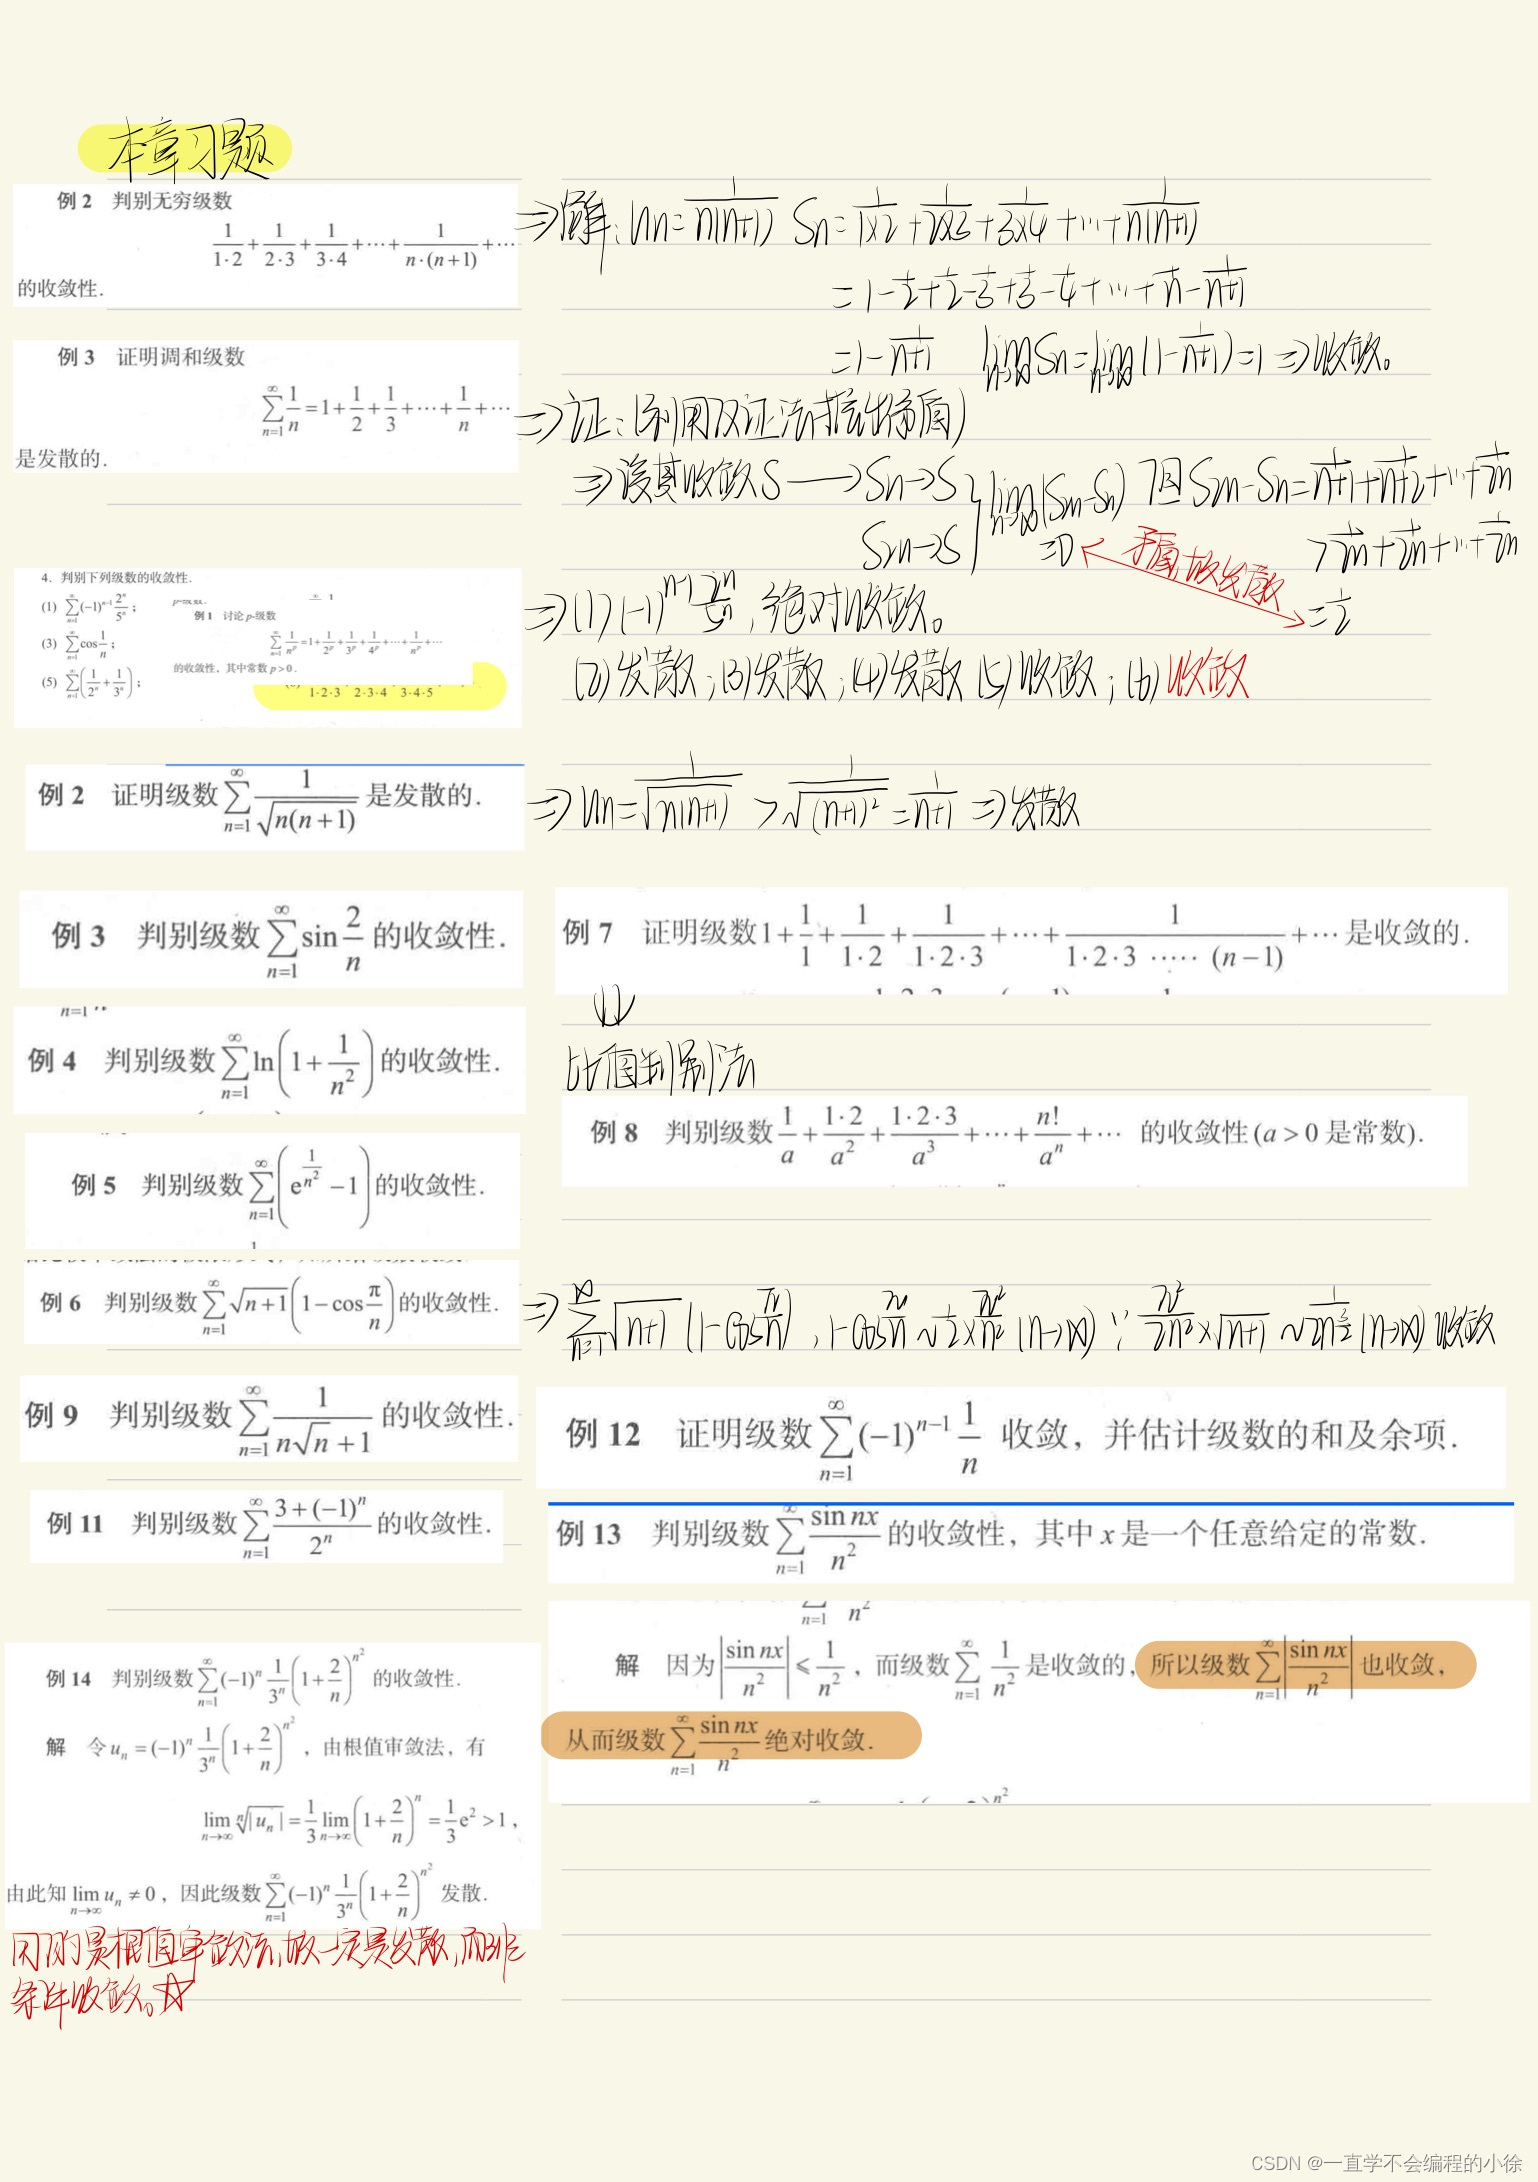 本章习题
例 2 判别无穷级数
1/(1·2) + 1/(2·3) + 1/(3·4) + ⋯ + 1/(n·(n+1)) + ⋯
的收敛性.
⇒解: Un = 1/(n(n+1)) Sn = 1/(1×2) + 1/(2×3) + 1/(3×4) + ⋯ + 1/(n(n+1))
= 1 - 1/2 + 1/2 - 1/3 + 1/3 - 1/4 + ⋯ + 1/n - 1/(n+1)
= 1 - 1/(n+1) lim n→∞ Sn = lim n→∞ (1 - 1/(n+1)) = 1 ⇒ 收敛。
例 3 证明调和级数
∑_{n=1}^{∞} 1/n = 1 + 1/2 + 1/3 + ⋯ + 1/n + ⋯
是发散的.
⇒证:(利用反证法推出矛盾)
⇒设其收敛S → Sn→S
S2n→S } lim n→∞ (S2n-Sn) = 0
但 S2n-Sn = 1/(n+1) + 1/(n+2) + ⋯ + 1/2n
> 1/2n + 1/2n + ⋯ + 1/2n
= 1/2
矛盾,故发散
4. 判别下列级数的收敛性.
(1) ∑_{n=1}^{∞} (-1)^{n-1} 2^n/5^n ;
(3) ∑_{n=1}^{∞} cos 1/n ;
(5) ∑_{n=1}^{∞} (1/2^n + 1/3^n) ;
例 1 讨论 p-级数
∑_{n=1}^{∞} 1/n^p = 1 + 1/2^p + 1/3^p + 1/4^p + ⋯ + 1/n^p + ⋯
的收敛性, 其中常数 p>0.
1·2·3 2·3·4 3·4·5
⇒(1) (-1)^{n-1} 2^n/5^n, 绝对收敛。
(2)发散;(3)发散;(4)发散 (5)收敛;(6)收敛
例 2 证明级数 ∑_{n=1}^{∞} 1/√(n(n+1)) 是发散的.
⇒ Un = 1/√(n(n+1)) > 1/√((n+1)²) = 1/(n+1) ⇒发散
例 3 判别级数 ∑_{n=1}^{∞} sin 2/n 的收敛性.
例 4 判别级数 ∑_{n=1}^{∞} ln(1 + 1/n²) 的收敛性.
例 5 判别级数 ∑_{n=1}^{∞} (e^{1/n²} - 1) 的收敛性.
例 7 证明级数 1 + 1/1 + 1/(1·2) + 1/(1·2·3) + ⋯ + 1/(1·2·3 ····· (n-1)) + ⋯ 是收敛的.
⇓
比值判别法
例 8 判别级数 1/a + (1·2)/a² + (1·2·3)/a³ + ⋯ + n!/a^n + ⋯ 的收敛性 (a>0 是常数).
例 6 判别级数 ∑_{n=1}^{∞} √(n+1) (1 - cos π/n) 的收敛性.
⇒ ∑_{n=1}^{∞} √(n+1) (1-cos π/n), 1-cos π/n ~ 1/2 × π²/n² (n→∞) ∵ π²/2n² × √(n+1) ~ 1/2n^{3/2} (n→∞) 收敛
例 9 判别级数 ∑_{n=1}^{∞} 1/(n√n + 1) 的收敛性.
例 11 判别级数 ∑_{n=1}^{∞} (3+(-1)^n)/2^n 的收敛性.
例 12 证明级数 ∑_{n=1}^{∞} (-1)^{n-1} 1/n 收敛, 并估计级数的和及余项.
例 13 判别级数 ∑_{n=1}^{∞} sin nx/n² 的收敛性, 其中 x 是一个任意给定的常数.
解 因为 |sin nx/n²| ⩽ 1/n², 而级数 ∑_{n=1}^{∞} 1/n² 是收敛的, 所以级数 ∑_{n=1}^{∞} |sin nx/n²| 也收敛,
从而级数 ∑_{n=1}^{∞} sin nx/n² 绝对收敛.
例 14 判别级数 ∑_{n=1}^{∞} (-1)^n 1/3^n (1 + 2/n)^{n²} 的收敛性.
解 令 u_n = (-1)^n 1/3^n (1 + 2/n)^{n²}, 由根值审敛法, 有
lim_{n→∞} ⁿ√|u_n| = 1/3 lim_{n→∞} (1 + 2/n)^n = 1/3 e² > 1,
由此知 lim_{n→∞} u_n ≠ 0, 因此级数 ∑_{n=1}^{∞} (-1)^n 1/3^n (1 + 2/n)^{n²} 发散.
因用的是根值审敛法,故一定是发散,而非
条件收敛。☆
CSDN @一直学不会编程的小徐